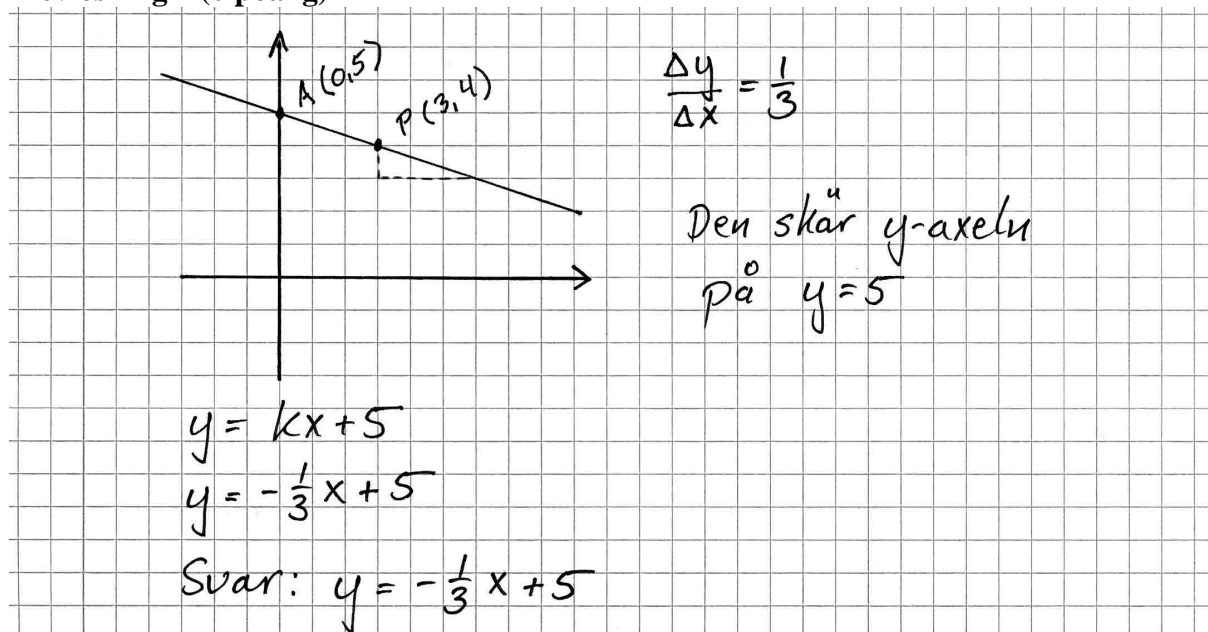 A (0,5)
P (3,4)
Δy/Δx = 1/3
Den skär y-axeln
på y = 5
y = kx + 5
y = -1/3 x + 5
Svar: y = -1/3 x + 5